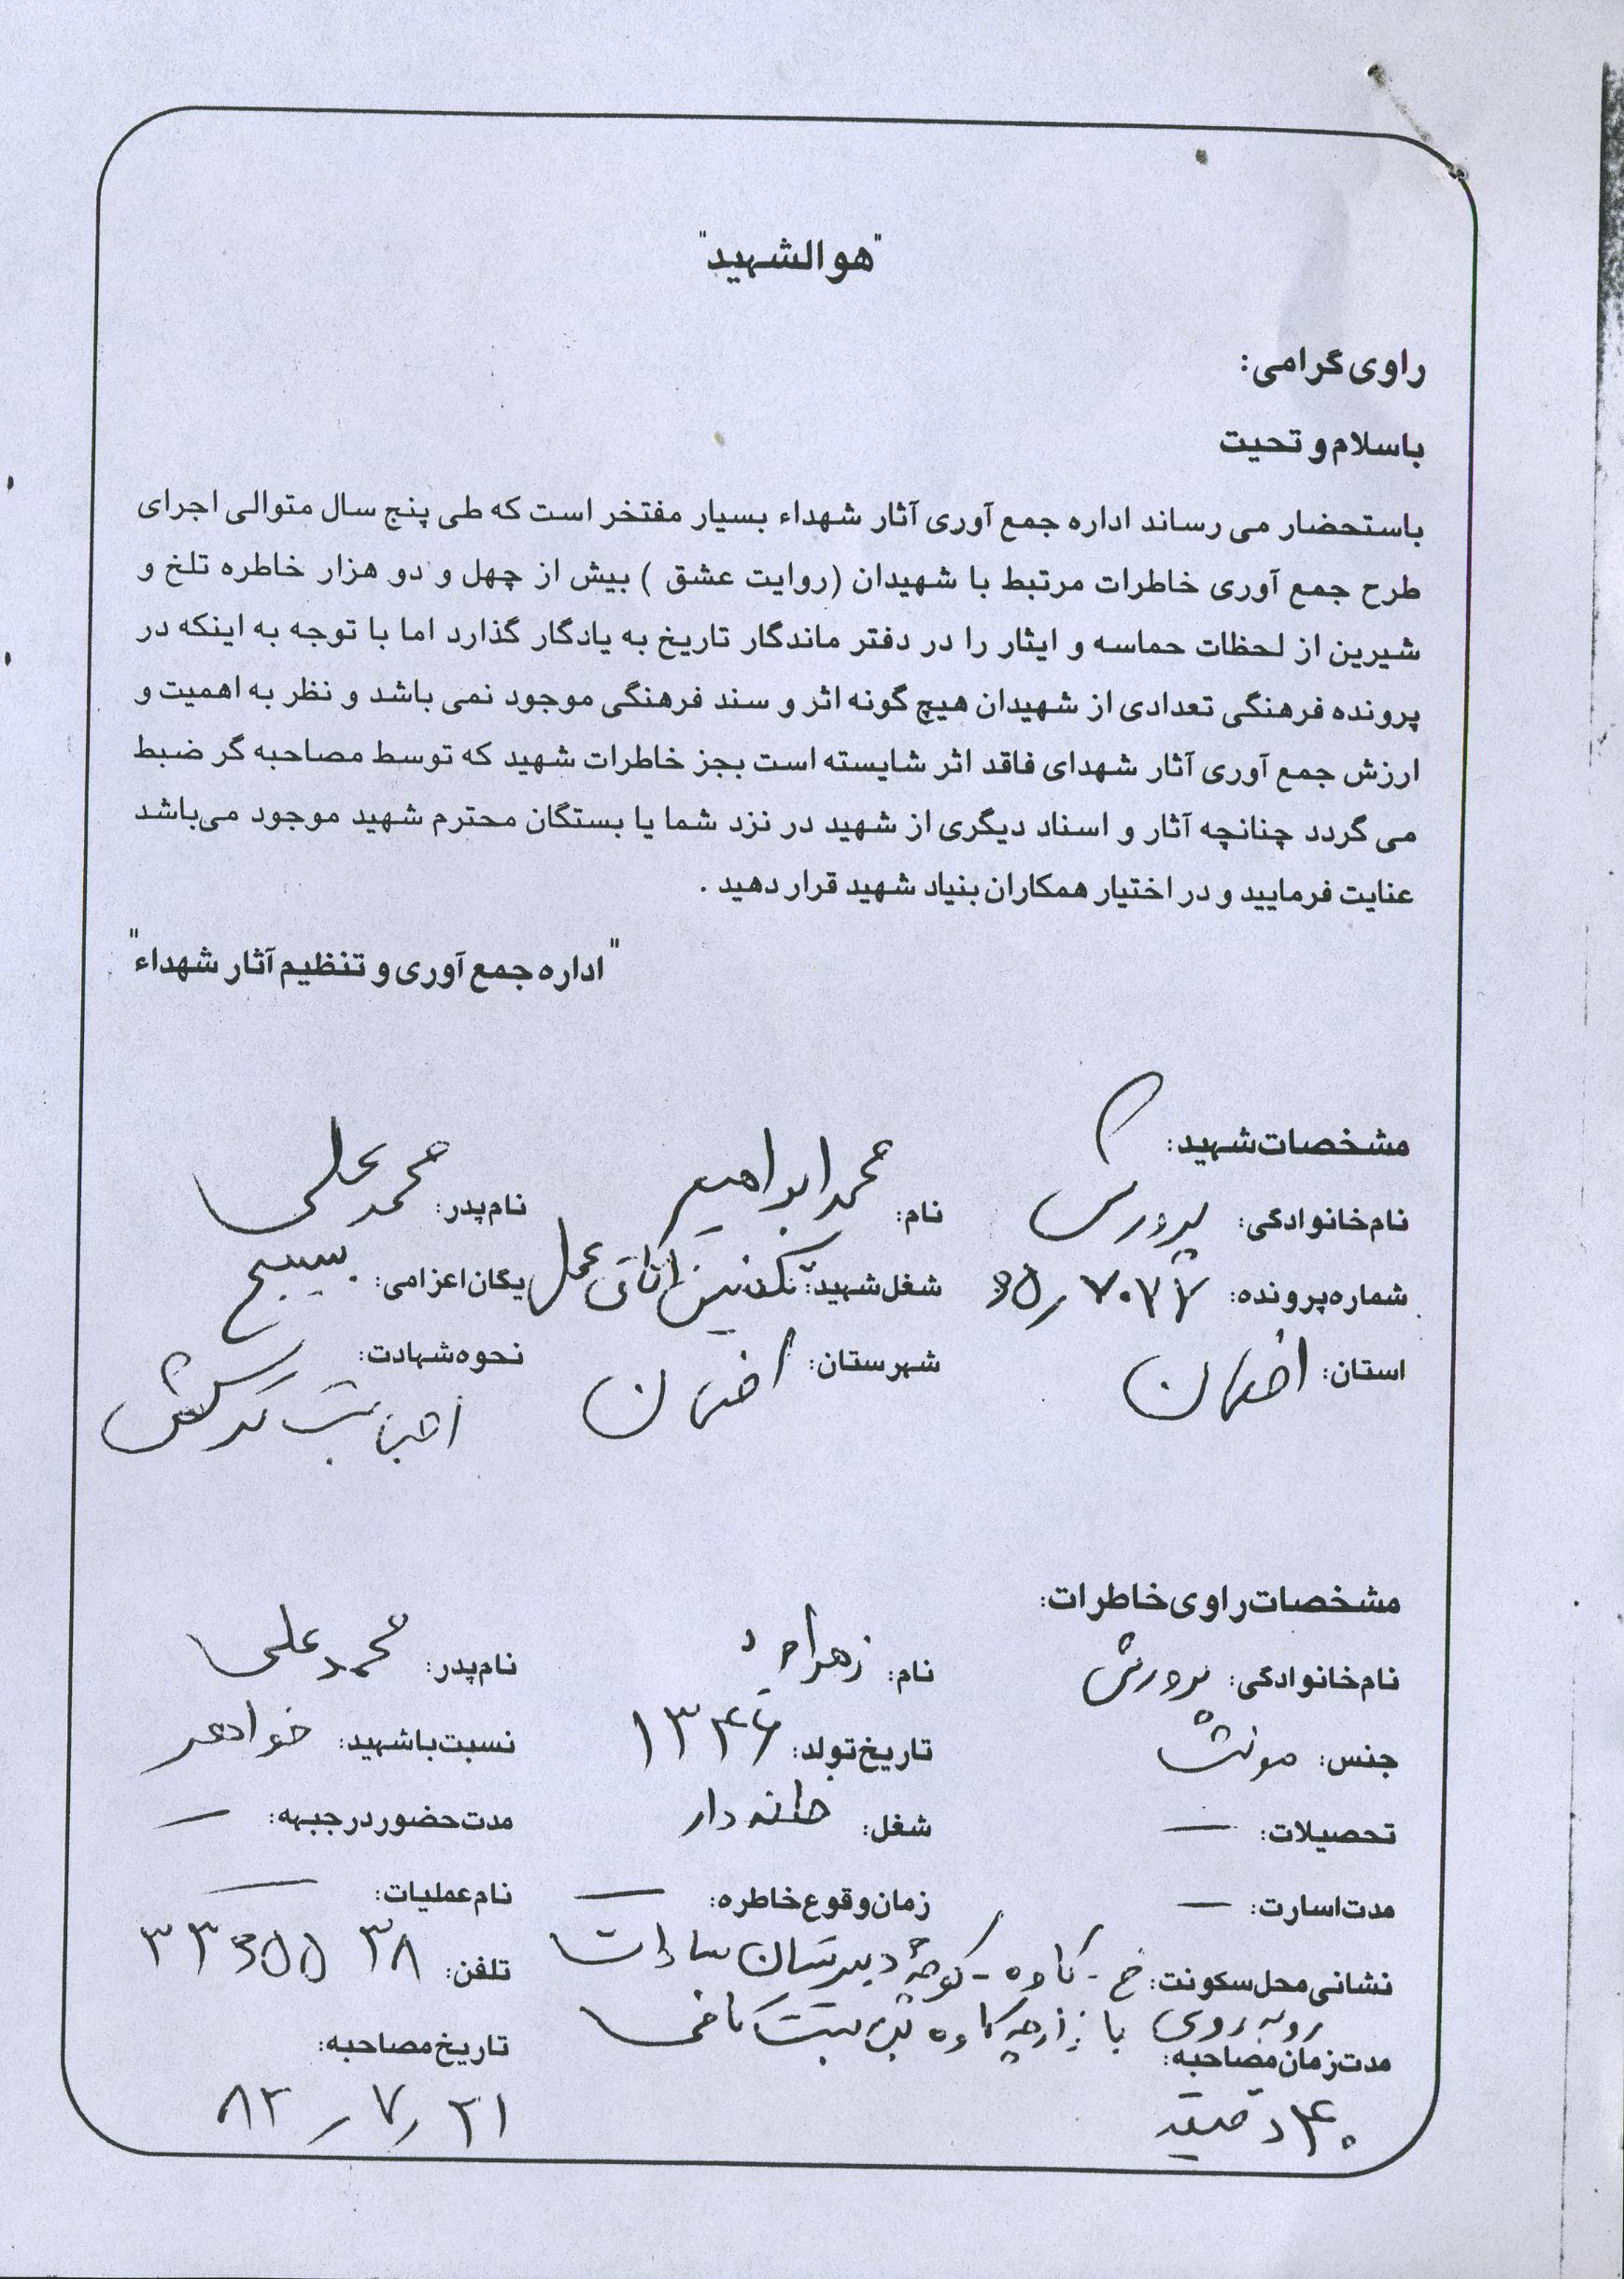 "هوالشهید"
راوی گرامی:
باسلام و تحیت
باستحضار می رساند اداره جمع آوری آثار شهداء بسیار مفتخر است که طی پنج سال متوالی اجرای
طرح جمع آوری خاطرات مرتبط با شهیدان (روایت عشق ) بیش از چهل و دو هزار خاطره تلخ و
شیرین از لحظات حماسه و ایثار را در دفتر ماندگار تاریخ به یادگار گذارد اما با توجه به اینکه در
پرونده فرهنگی تعدادی از شهیدان هیچ گونه اثر و سند فرهنگی موجود نمی باشد و نظر به اهمیت و
ارزش جمع آوری آثار شهدای فاقد اثر شایسته است بجز خاطرات شهید که توسط مصاحبه گر ضبط
می گردد چنانچه آثار و اسناد دیگری از شهید در نزد شما یا بستگان محترم شهید موجود می‌باشد
عنایت فرمایید و در اختیار همکاران بنیاد شهید قرار دهید .
"اداره جمع آوری و تنظیم آثار شهداء"
مشخصات شهید:
نام خانوادگی: پرورش نام: محمد ابراهیم نام پدر: محمد علی
شماره پرونده: شغل شهید: تکنسین اتاق عمل یگان اعزامی: بسیج
استان: اصفهان شهرستان: اصفهان نحوه شهادت:
اصابت ترکش
مشخصات راوی خاطرات:
نام خانوادگی: پرورش نام: زهرا نام پدر: محمد علی
جنس: مونث تاریخ تولد: ۱۳۴۶ نسبت باشهید: خواهر
تحصیلات: — شغل: خانه دار مدت حضور در جبهه: —
مدت اسارت: — زمان وقوع خاطره: — نام عملیات: —
نشانی محل سکونت: خ - کاوه - کوچه دبیرستان سادات تلفن: ۳۸
روبه روی بازارچه کاوه بن بست
مدت زمان مصاحبه: تاریخ مصاحبه:
۴۰ دقیقه ۲۱ / ۷ / ۸۲